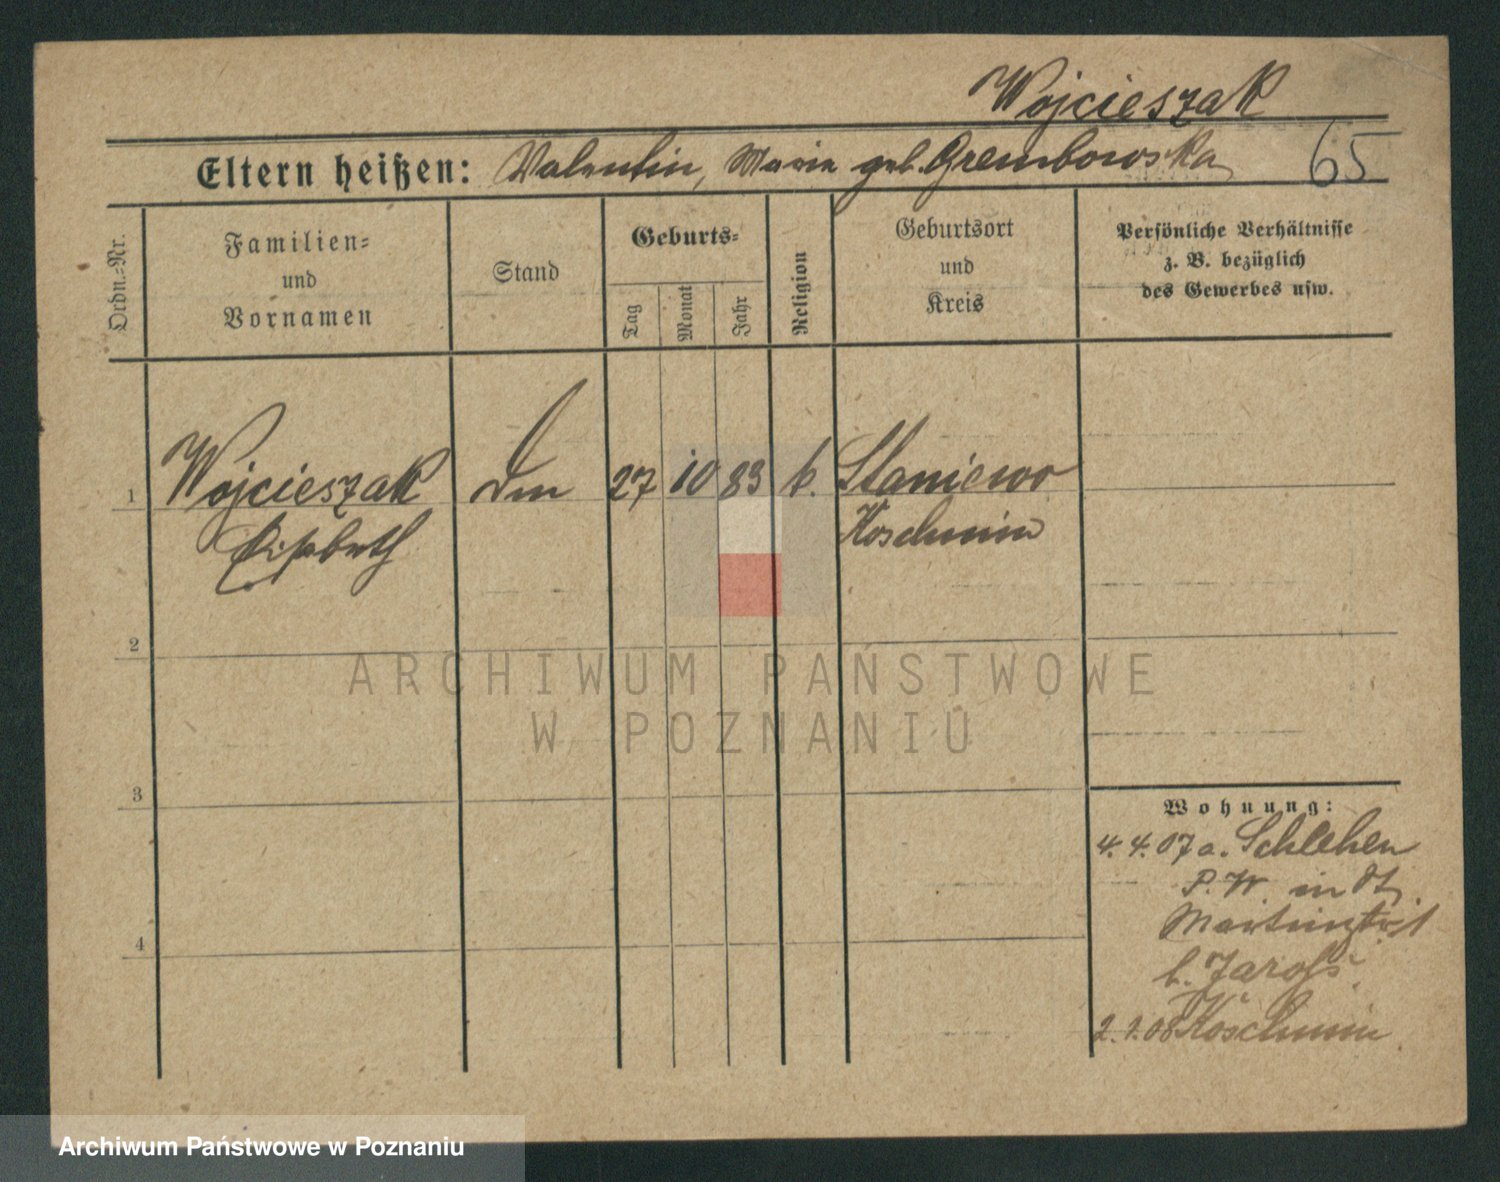 Wojcieszak
65
Eltern heißen: Valentin, Marie geb. Grembowska
Ordn.-Nr.
Familien-
und
Vornamen
Stand
Geburts-
Tag
Monat
Jahr
Religion
Geburtsort
und
Kreis
Persönliche Verhältnisse
z. B. bezüglich
des Gewerbes usw.
1 Wojcieszak 27 10 83 k. Staniewo
Elisabeth Koschmin
2
3
4
Wohnung:
4.4.07 a. Schlehen
P. W. in
b.
2.1.08 Koschmin
ARCHIWUM PAŃSTWOWE
W POZNANIU
Archiwum Państwowe w Poznaniu